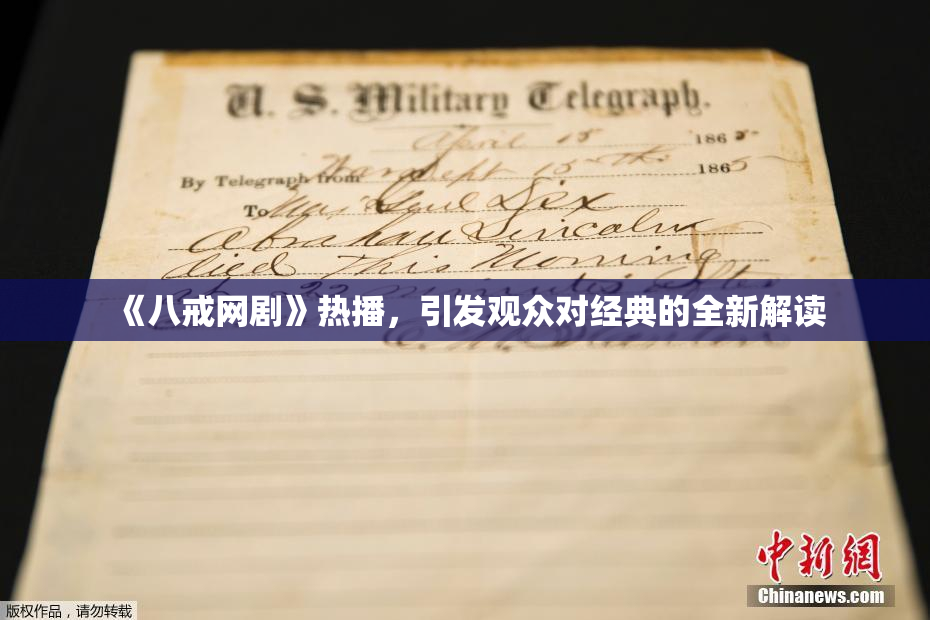 U. S. Military Telegraph.
April 15 1865
By Telegraph from War Dept 15th 1865
To Maj Genl Dix
Abraham Lincoln
died This Morning
at 22 minutes after
《八戒网剧》热播，引发观众对经典的全新解读
E. M. Stanton
中新網
Chinanews.com
版权作品，请勿转载